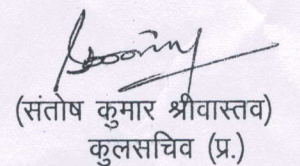 (संतोष कुमार श्रीवास्तव)
कुलसचिव (प्र.)